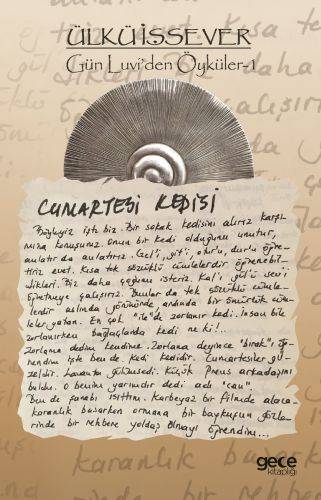 ÜLKÜ İSSEVER
Gün Luvi'den Öyküler-1
CUMARTESİ KEDİSİ
Böyleyiz işte biz. Bir sokak kedisini alırız karşı-
mıza konuşuruz. Onun bir kedi olduğunu unutur,
anlatır da anlatırız. Gel'i, git'i, otur'u, dur'u öğre-
tiriz evet. Kısa tek sözcüklü cümlelerdir öğrenebil-
dikleri. Biz daha çoğunu isteriz. Kal'ı gül'ü sev'i
öğretmeye çalışırız. Bunlar da tek sözcüklü cümle-
lerdir aslında görünürde ardında bir ömürlük cüm-
leler yatan. En çok "ile"de zorlanır kedi. İnsan bile
zorlanırken bağlaçlarda kedi ne ki!..
Zorlama dedim kendime. Zorlama deyince "bırak"ı öğ-
rendim işte ben de. Kedi kedidir. Cumartesiler gü-
zeldir. Lavanta gülümsedi. Küçük Prens arkadaşını
buldu. O benim yarımdır dedi adı "can".
Ben de şarabı ısıttım. Karbeyaz bir filmde alaca-
karanlık basarken ormana bir baykuşun gözle-
rinde bir rehbere yoldaş olmayı öğrendim...
karanlık
gece
kitaplığı